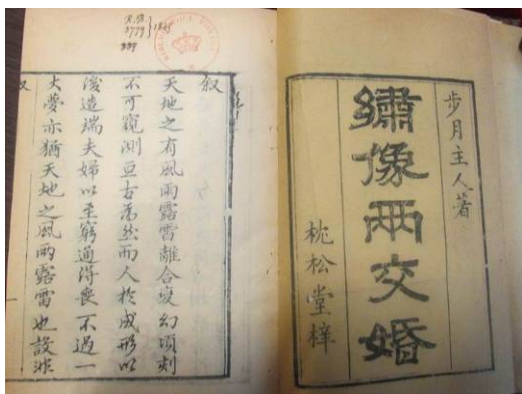 步月主人著
繡像兩交婚
枕松堂梓
叙
天地之有風雨露雷離合变幻頃刻
不可窺測亘古為然而人於成形以
後造端夫婦以至窮通得喪不過一
大夢亦猶天地之風雨露雷也設非
叙